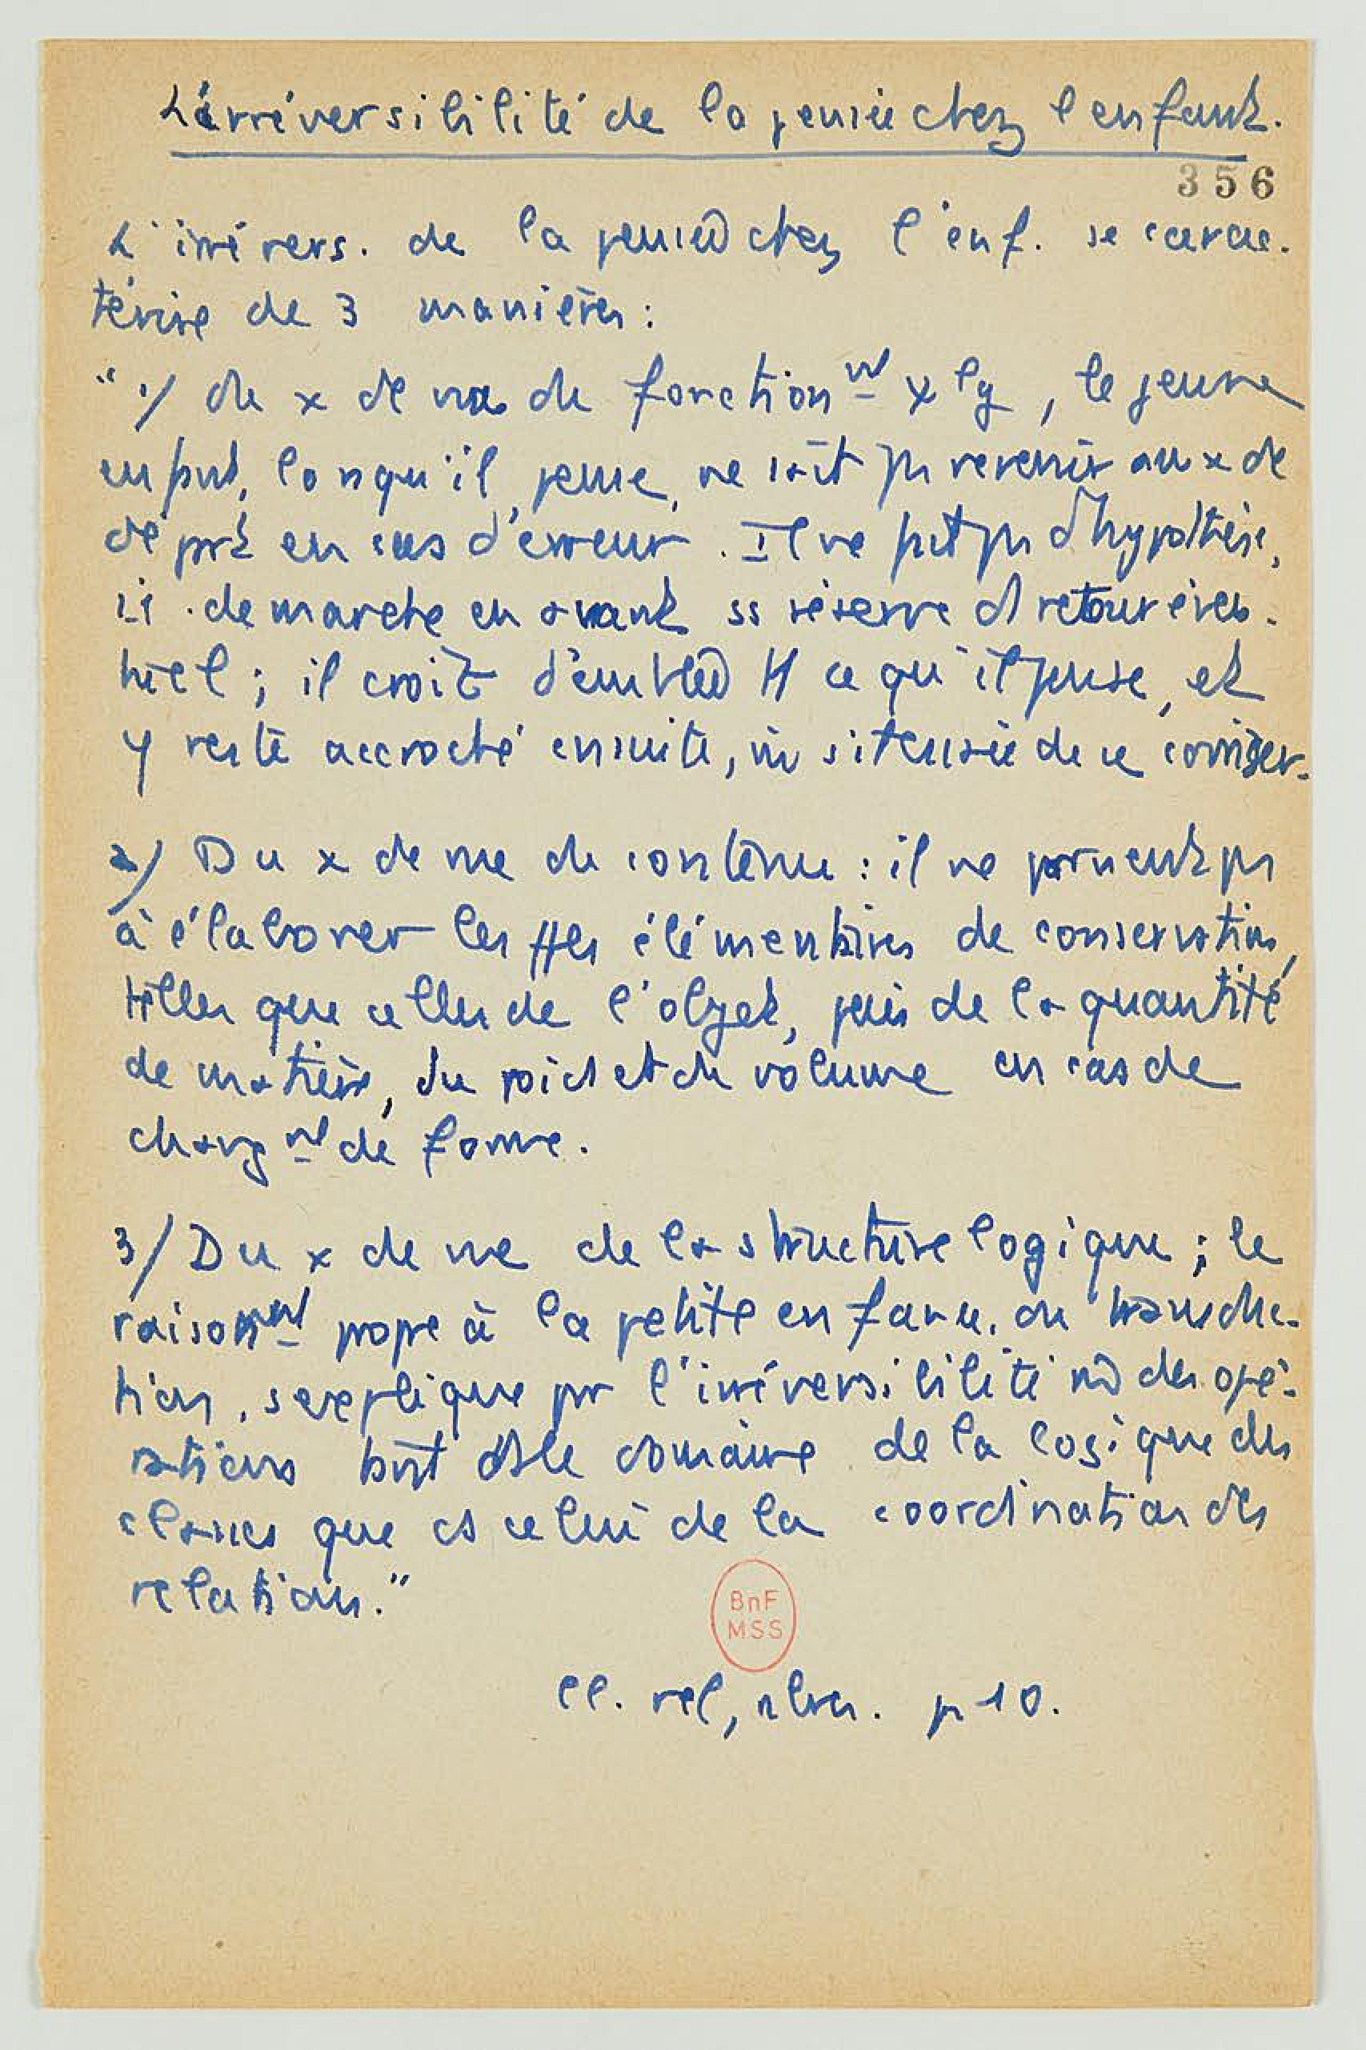 L'irréversibilité de la pensée chez l'enfant.
356
L'irrévers. de la pensée chez l'enf. se carac-
térise de 3 manières :
" 1/ du x de vue du fonction nt ψ lg, le jeune
enfant, lorsqu'il pense, ne sait pas revenir au x de
départ en cas d'erreur. Il ne fait pas d'hypothèse,
i.e. de marche en avant ss réserve d retour éven-
tuel ; il croit d'emblée tt ce qu'il pense, et
y reste accroché ensuite, ou s'il essaie de se corriger.
2/ Du x de vue du contenu : il ne parvient pas
à élaborer les élémentaires de conservation,
telles que celles de l'objet, puis de la quantité
de matière, du poids et du volume en cas de
chang nt de forme.
3/ Du x de vue de la structure logique ; le
raisonnt propre à la petite enfance, ou transduc-
tion, s'explique par l'irréversibilité des opé-
rations tant ds le domaine de la logique des
classes que ds celui de la coordination des
relations."
BnF
MSS
Cl. rel, p 10.